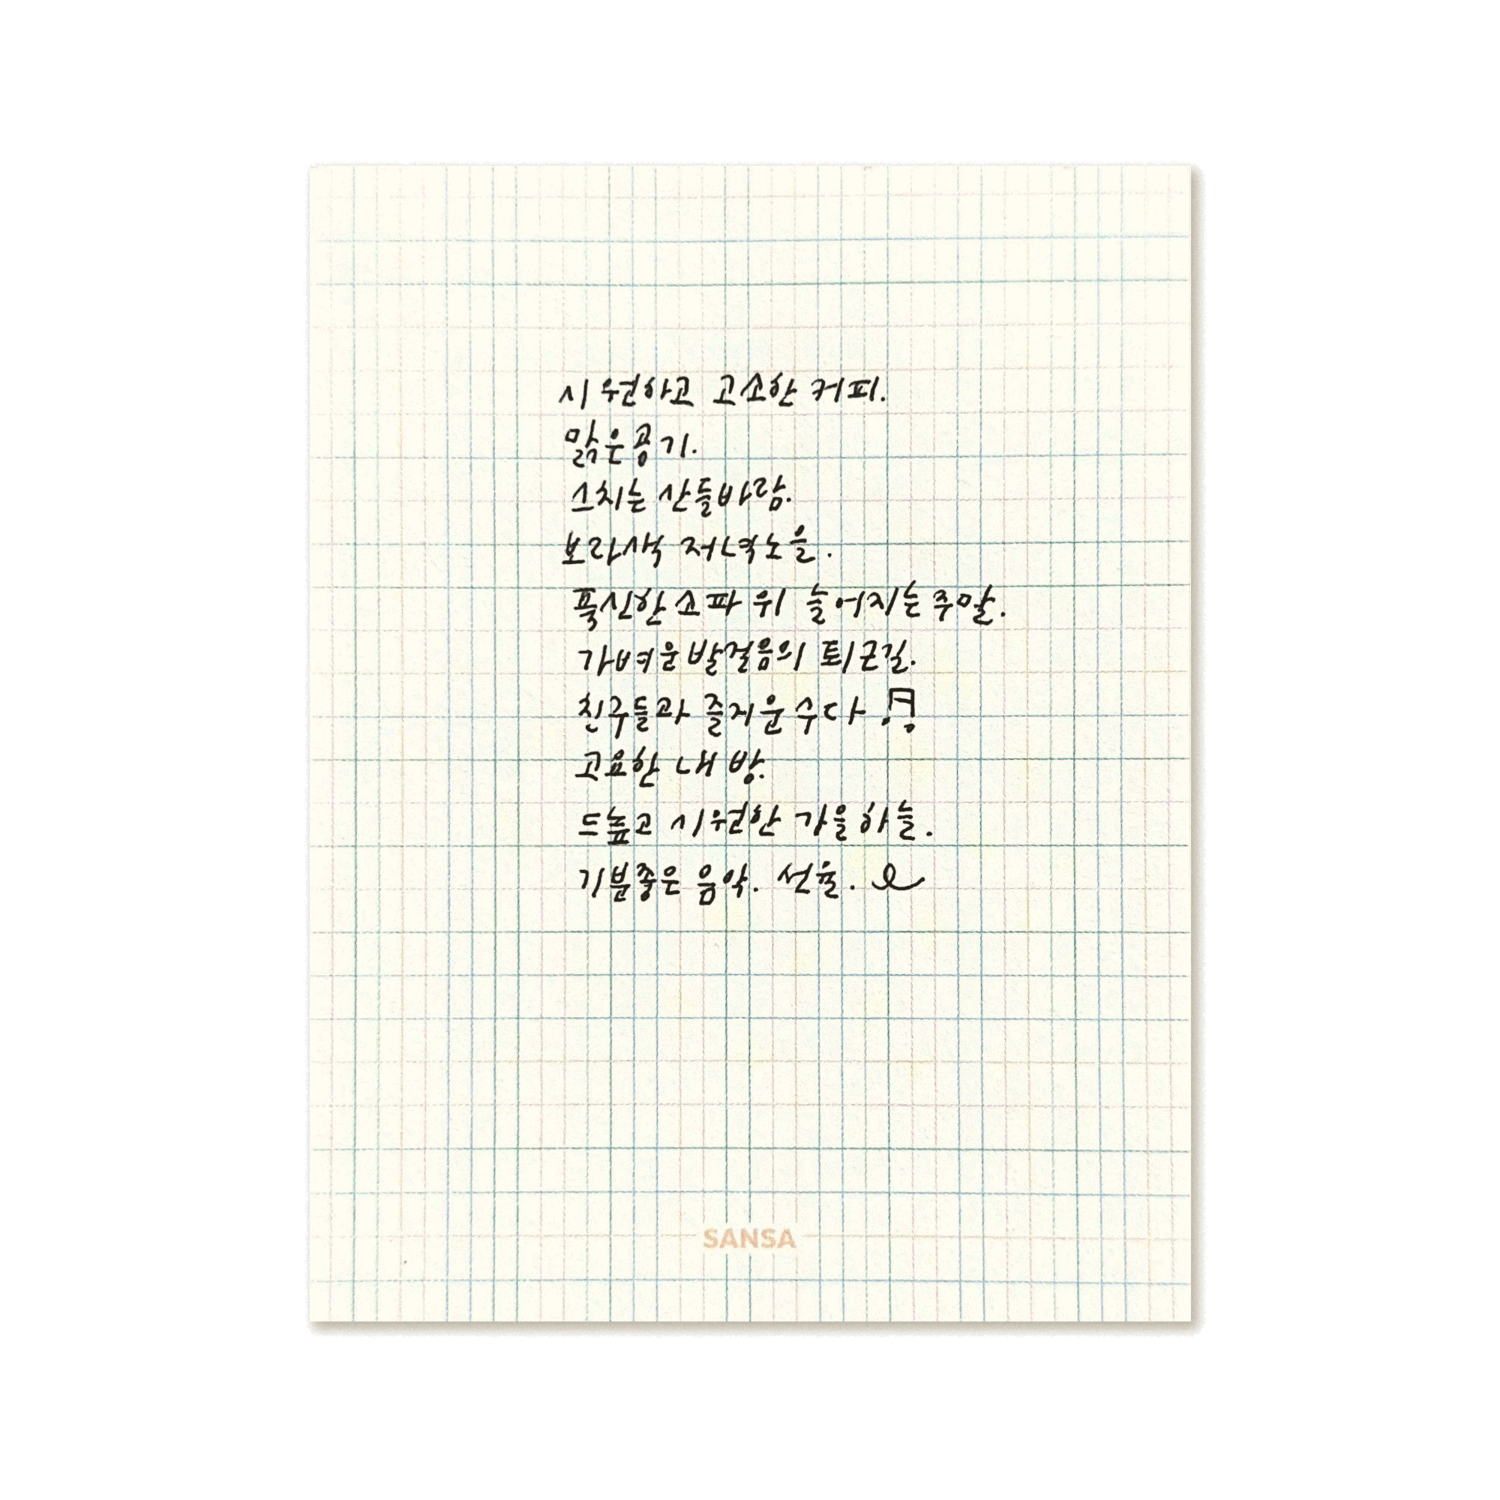 시원하고 고소한 커피.
맑은공기.
스치는 산들바람.
보라색 저녁노을.
푹신한 소파 위 늘어지는 주말.
가벼운 발걸음의 퇴근길.
친구들과 즐거운 수다 ♬
고요한 내 방.
드높고 시원한 가을하늘.
기분좋은 음악. 선율.
SANSA